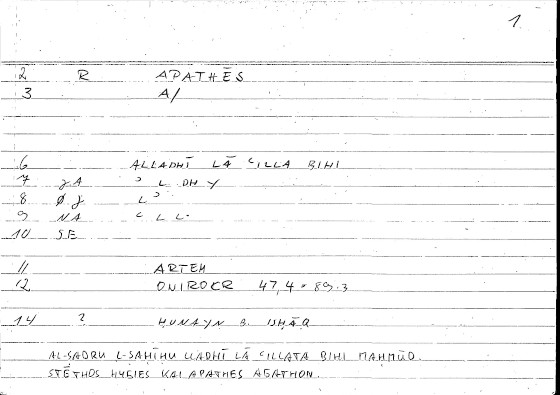 1
2 R APATHĒS
3 A/
6 ALLADHĪ LĀ ʿILLA BIHI
7 JA ʾ L DH Y
8 Ø J L ʾ
9 NA ʿ L L
10 SE
11 ARTEM
12 ONIROCR 47,4 = 89.3
14 2 ḤUNAYN B. ISḤĀQ
AL-ṢADRU L-ṢAḤĪḤU LLADHĪ LĀ ʿILLATA BIHI MAḤMŪD.
STĒTHOS HYGIES KAI APATHES AGATHON.